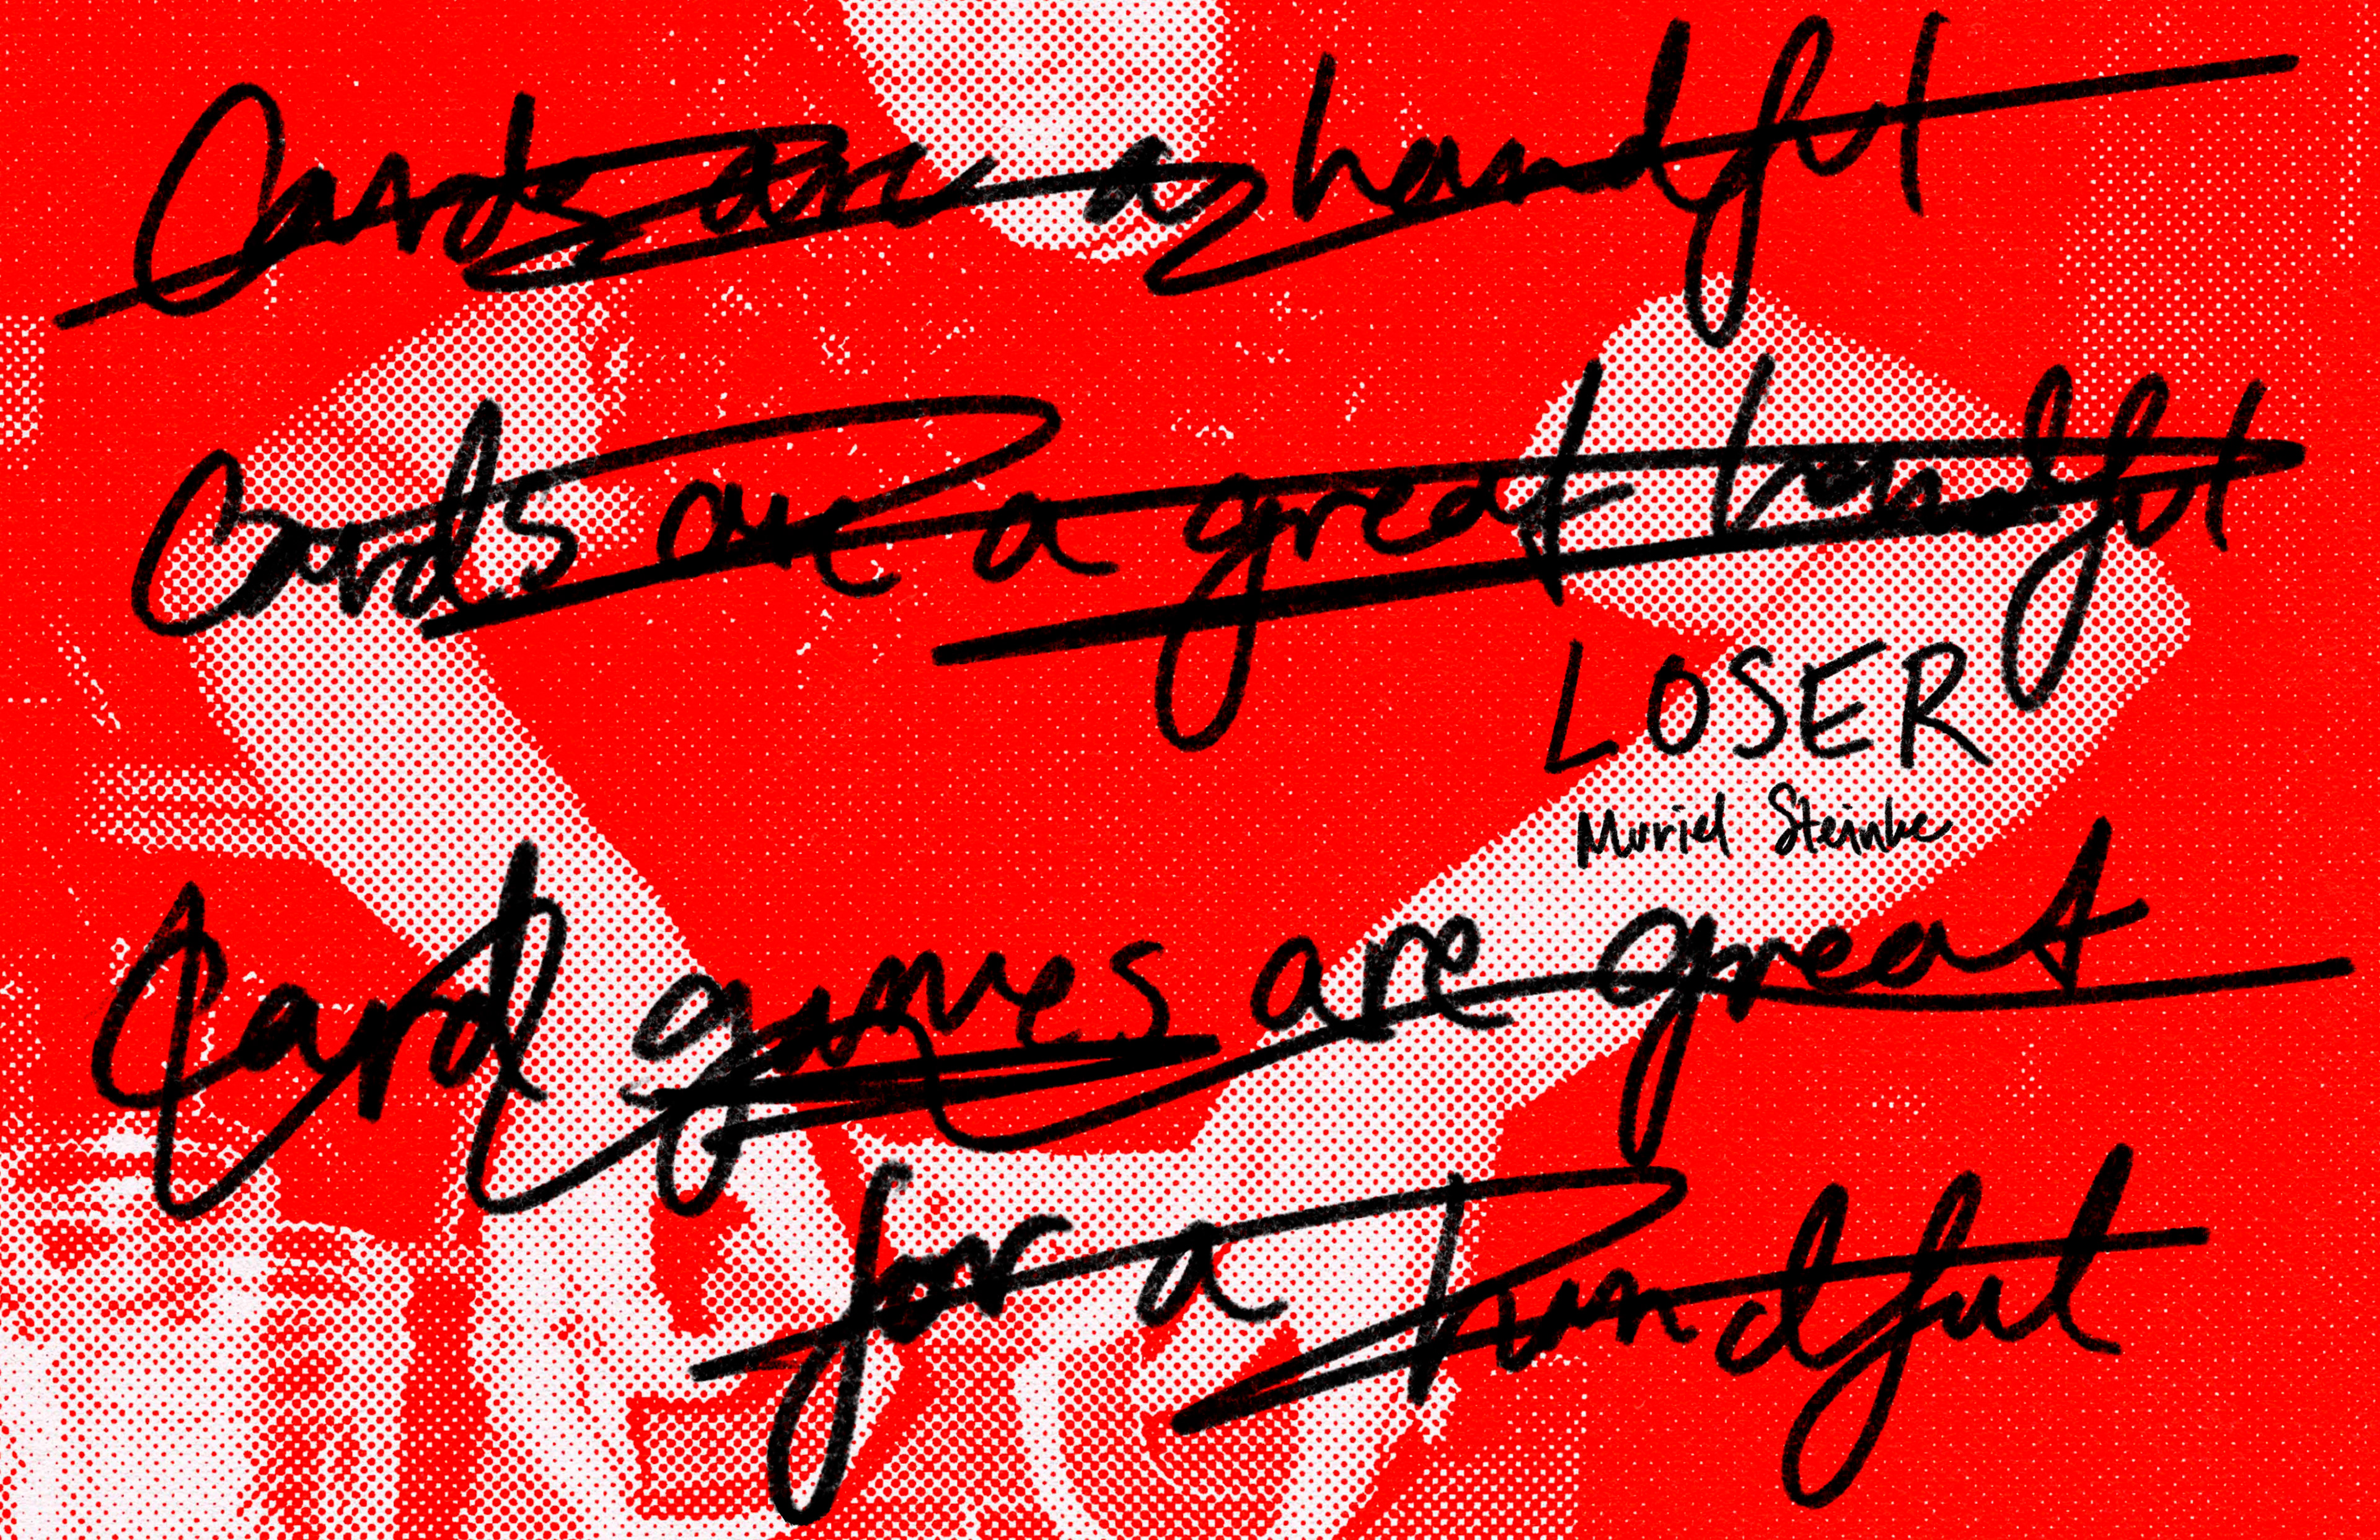 Cards are a handful
Cards are a great handful
LOSER
Muriel Steinke
Card games are great
for a handful